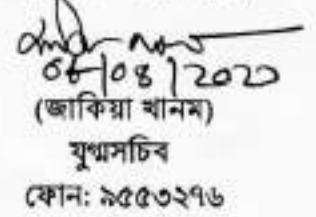 06/08/2023
(জাকিয়া খানম)
যুগ্মসচিব
ফোন: ৯৫৫৩২৭৬